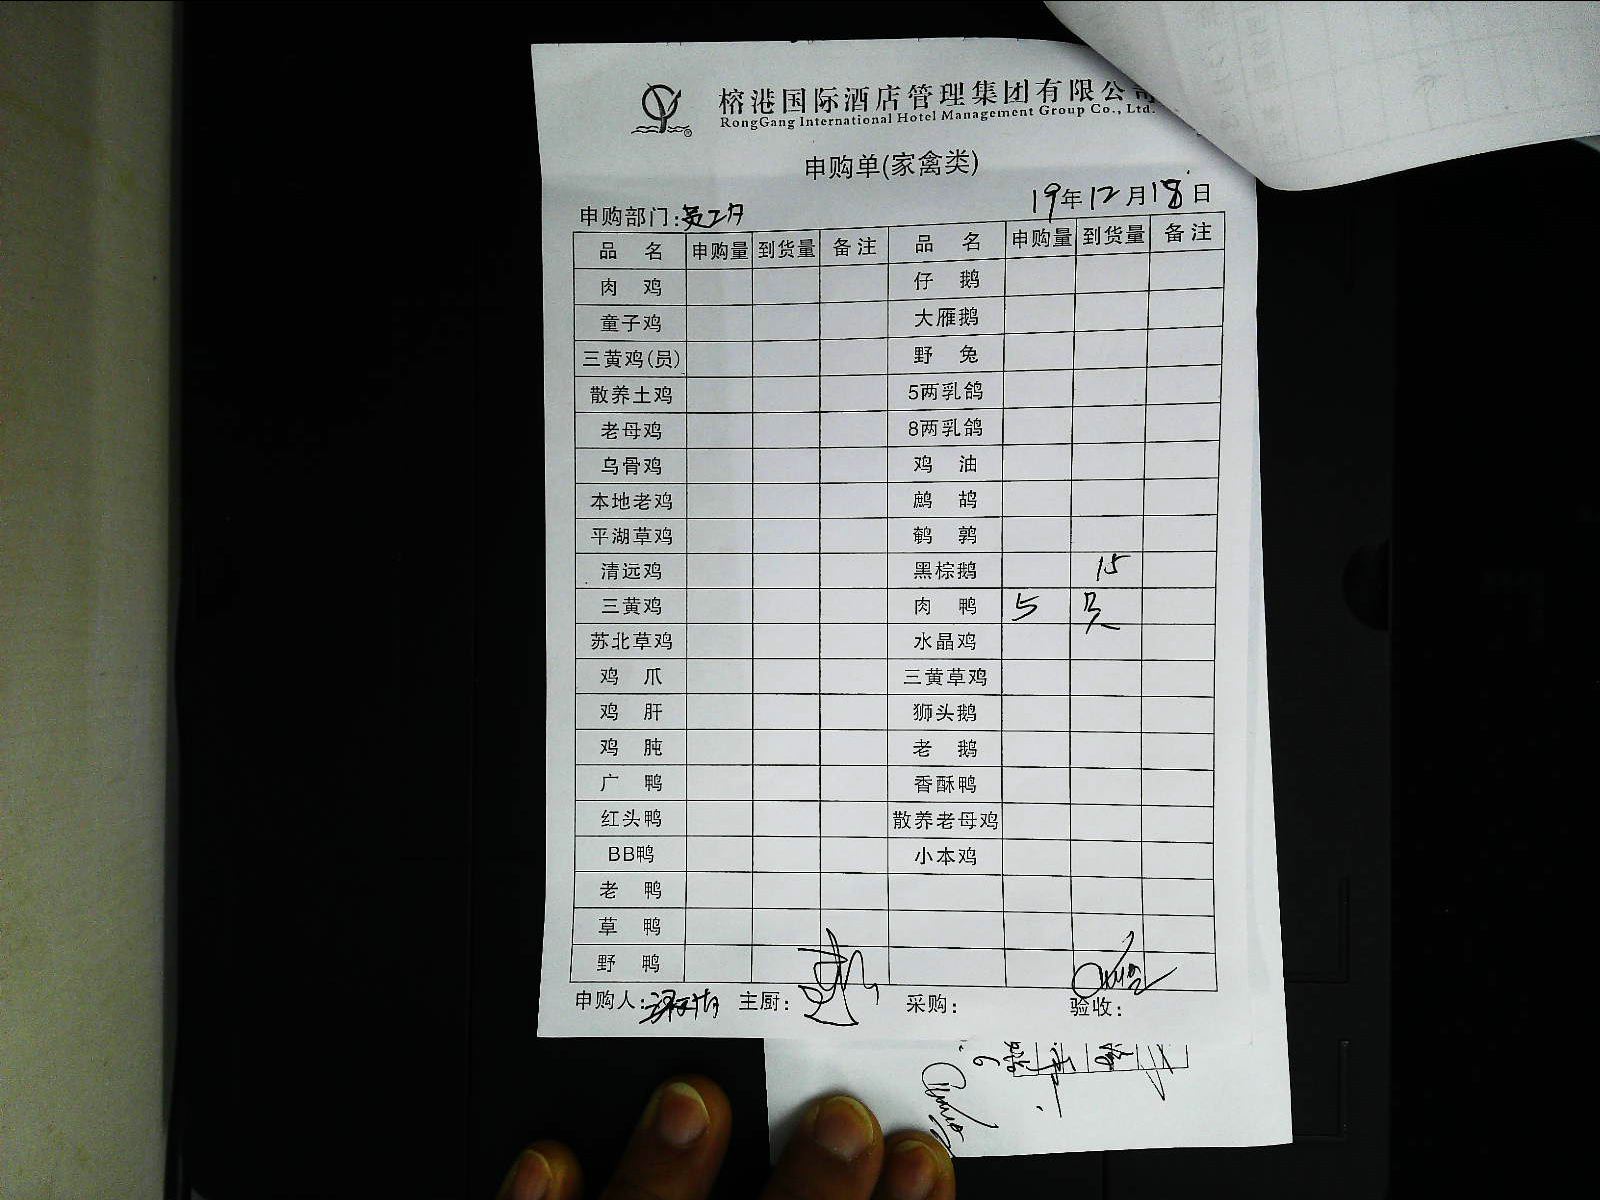 榕港国际酒店管理集团有限公司
RongGang International Hotel Management Group Co., Ltd.
申购单(家禽类)
19年12月18日
申购部门:员工
品 名 申购量 到货量 备注 品 名 申购量 到货量 备注
肉 鸡 仔 鹅
童子鸡 大雁鹅
三黄鸡(员) 野 兔
散养土鸡 5两乳鸽
老母鸡 8两乳鸽
乌骨鸡 鸡 油
本地老鸡 鹧 鸪
平湖草鸡 鹌 鹑
清远鸡 黑棕鹅 15
三黄鸡 肉 鸭 5 只
苏北草鸡 水晶鸡
鸡 爪 三黄草鸡
鸡 肝 狮头鹅
鸡 肫 老 鹅
广 鸭 香酥鸭
红头鸭 散养老母鸡
BB鸭 小本鸡
老 鸭
草 鸭
野 鸭
申购人: 主厨: 采购: 验收:
6